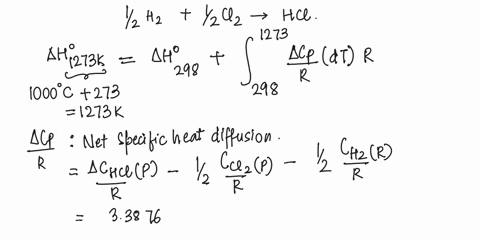 1/2 H2 + 1/2 Cl2 → HCl.
ΔH°1273K = ΔH°298 + ∫298^1273 ΔCp/R (dT) R
1000°C + 273
= 1273 K
ΔCp/R : Net specific heat diffusion.
= ΔCHCl(P)/R − 1/2 CCl2(P)/R − 1/2 CH2(R)/R
= 3.3876